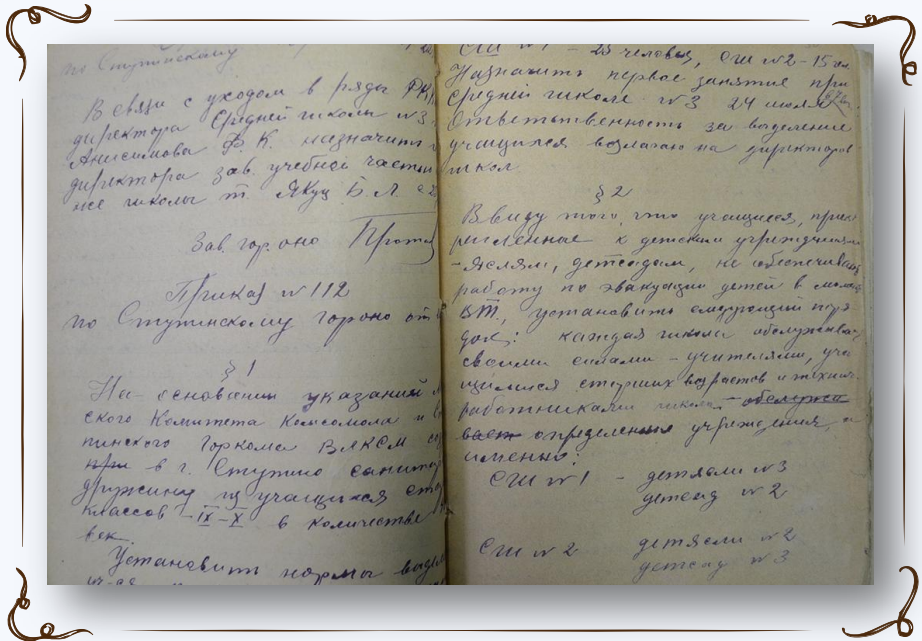 по Ступинскому
В связи с уходом в ряды РКК
директора Средней школы №3
Анисимова Ф. К. назначить
директора зав. учебной частью
же школы т. Якуц Б. Л. с 2
Зав. гор. оно
Приказ №112
по Ступинскому гороно от
§ 1
На основании указаний
ского Комитета Комсомола и
пинского Горкома ВЛКСМ
при в г. Ступино санитар
дружину из учащихся стар
классов – IX–X в количестве
век.
Установить нормы выдел
СШ №1 – 25 человек, СШ №2 – 15 чел.
Назначить первое занятие при
средней школе №3 24 июля
Ответственность за выделение
учащихся возлагаю на директоров
школ
§ 2
Ввиду того, что учащиеся, прик
репленные к детским учреждениям
– яслям, детсадам, не обеспечивают
работу по эвакуации детей в
ВТ, установить следующий поря
док: каждая школа обслуживает
своими силами – учителями, уча
щимися старших возрастов и технич.
работниками школы – обслужи
вает определенные учреждения, а
именно:
СШ №1 – детясли №3
детсад №2
СШ №2 детясли №2
детсад №3